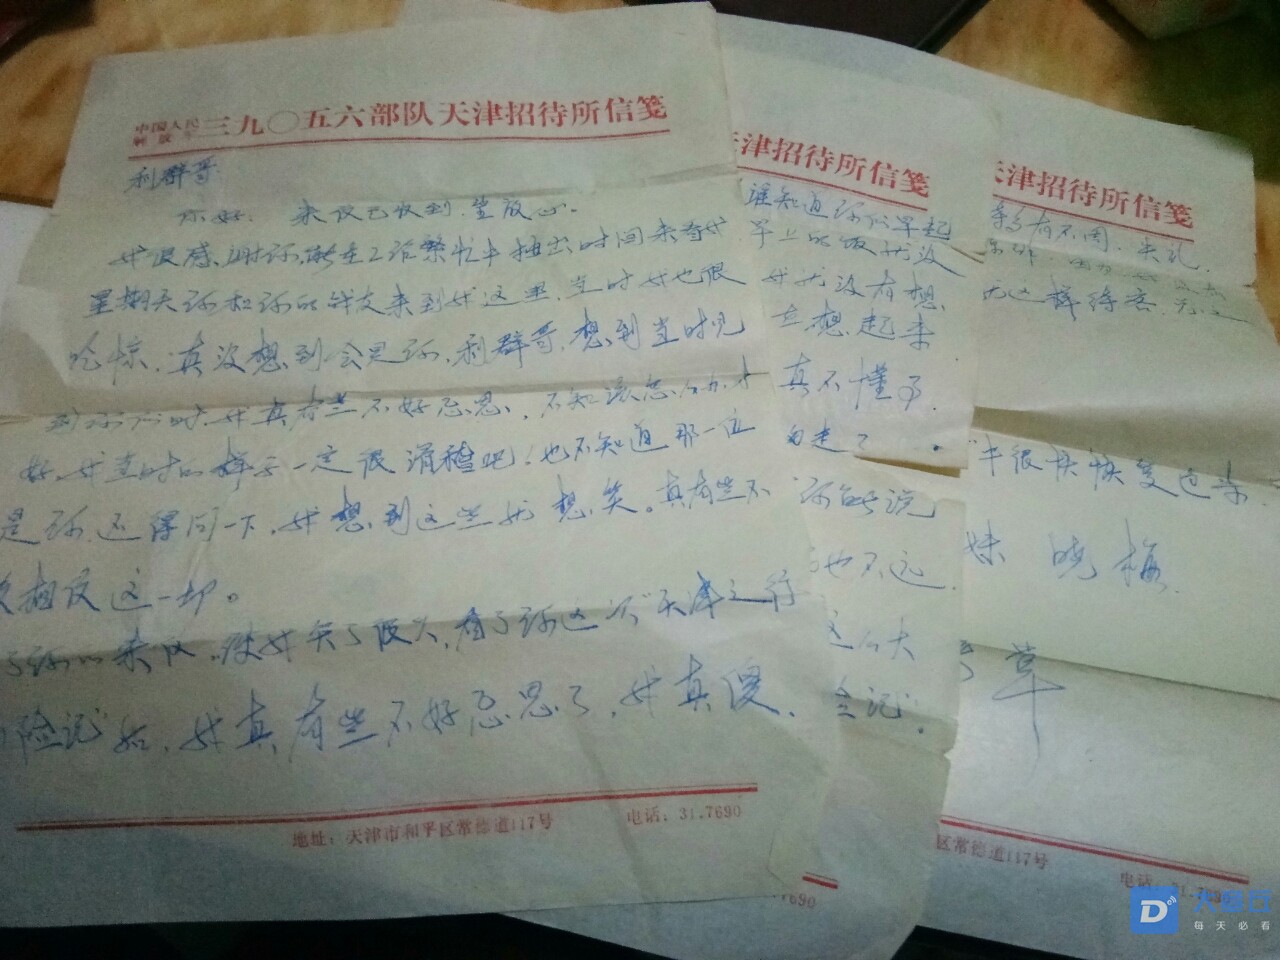 中国人民解放军三九〇五六部队天津招待所信笺
利群哥
你好. 来仪已收到.望放心.
我很感谢你,能在工作繁忙中抽出时间来看我
星期天你和你的战友来到我这里,当时我也很
吃惊,真没想到会是你,利群哥,想到当时见
到你们时,我真有些不好意思,不知该怎么办才
好,我当时的样子一定很滑稽吧!也不知道那一位
是你还得问一下,我想到这些就想笑。真有些不
敢相信这一切。
了你的来
看了你这次"天津之行
险记"后,我真有些不好意思了,我真傻,
地址:天津市和平区常德道117号 电话:31.7690
天津招待所信笺
谁知道你们早起
早上的饭就没
我就没有想,
在想起来
真不懂事
白走了.
你能说
也不远.
这么大
险记".
7690
天津招待所信笺
有不周,失礼.
这样待客.
很快恢复过来
妹 晓梅.
草
区常德道117号
电话:31.7690
每天必看